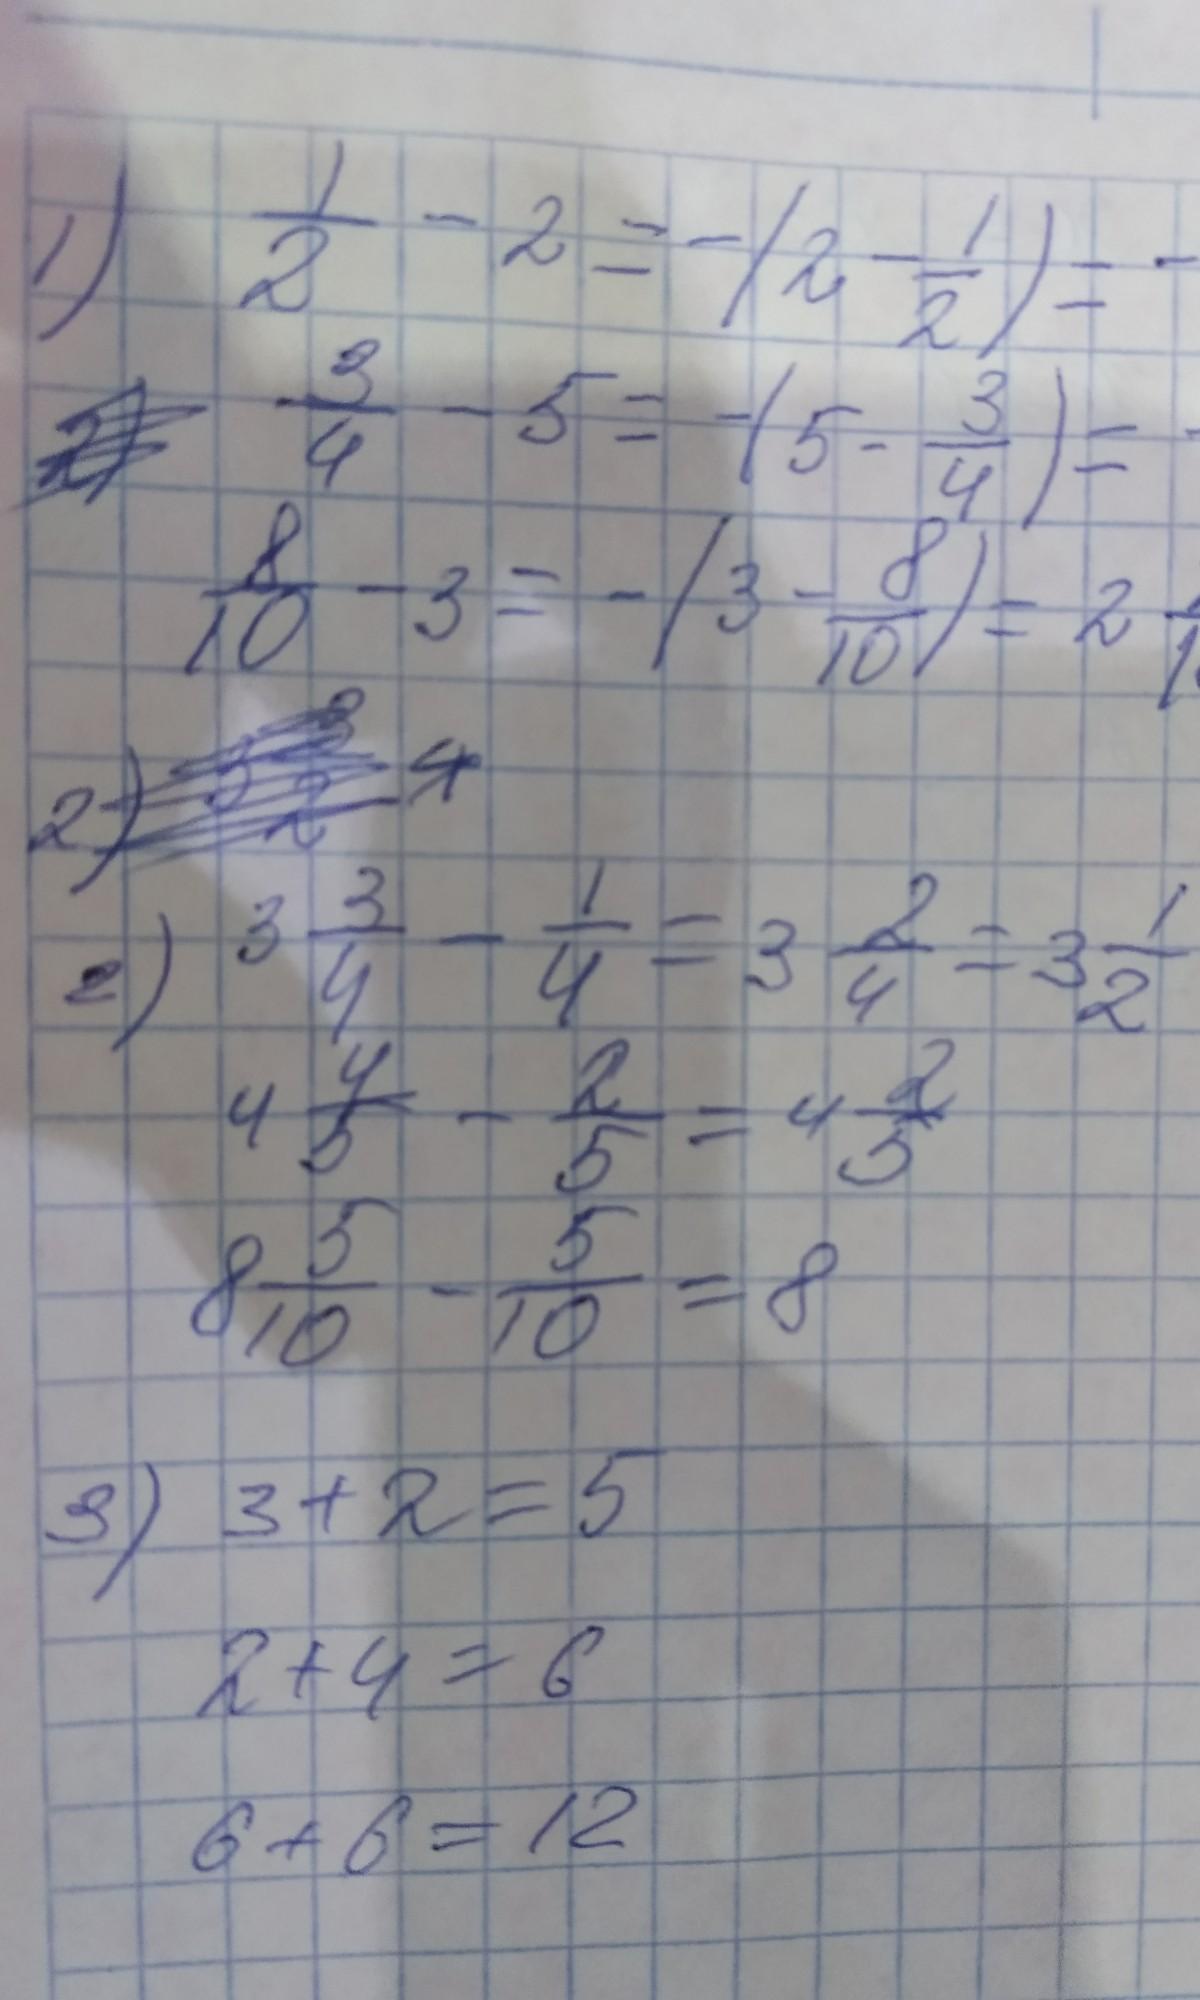 1) 1/2 - 2 = -(2 - 1/2) = -
3/4 - 5 = -(5 - 3/4) = -
8/10 - 3 = -(3 - 8/10) = 2
2) 4
2) 3 3/4 - 1/4 = 3 2/4 = 3 1/2
4 4/5 - 2/5 = 4 2/5
8 5/10 - 5/10 = 8
3) 3 + 2 = 5
2 + 4 = 6
6 + 6 = 12